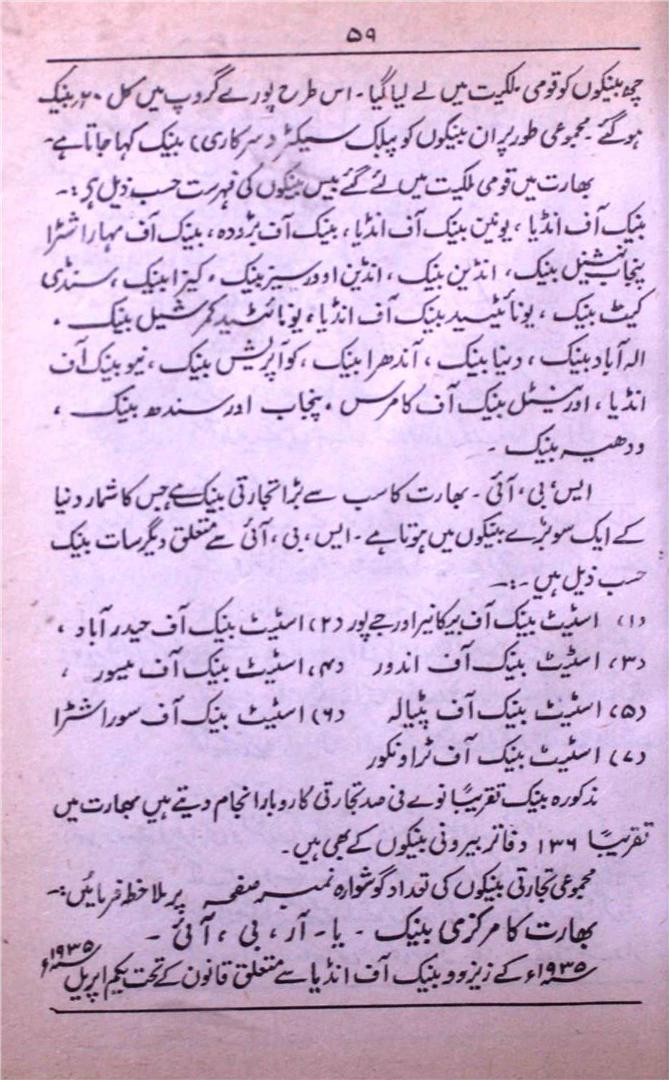 ۵۹
چھ بینکوں کو قومی ملکیت میں لے لیا گیا۔ اس طرح پورے گروپ میں کل ۲۰ بینک
ہو گئے مجموعی طور پر ان بینکوں کو پبلک سیکٹر (سرکاری) بینک کہا جاتا ہے۔
بھارت میں قومی ملکیت میں لئے گئے بیس بینکوں کی فہرست حسب ذیل ہی :۔
بنیک آف انڈیا ، یونین بینک آف انڈیا ، بینک آف بڑودہ ، بینک آف مہاراشٹرا
پنجاب نیشنل بینک ، انڈین بینک ، انڈین اوورسیز بینک ، کینرا بینک ، سنڈی
کیٹ بینک ، یونائیٹیڈ بینک آف انڈیا ، یونائٹیڈ کمرشیل بینک ،
الہ آباد بینک ، دینا بینک ، آندھرا بینک ، کوآپریٹس بینک ، نیو بینک آف
انڈیا ، اورینٹل بینک آف کامرس ، پنجاب اور سندھ بینک ،
و دھیر بینک ۔
ایس ، بی ، آئی ۔ بھارت کا سب سے بڑا تجارتی بینک ہے جس کا شمار دنیا
کے ایک سو بڑے بینکوں میں ہوتا ہے ۔ ایس ، بی ، آئی سے متعلق دیگر سات بینک
حسب ذیل ہیں :۔
(۱) اسٹیٹ بینک آف بیکانیر اور جے پور (۲) اسٹیٹ بینک آف حیدر آباد ،
(۳) اسٹیٹ بینک آف اندور (۴) اسٹیٹ بینک آف میسور ،
(۵) اسٹیٹ بینک آف پٹیالہ (۶) اسٹیٹ بینک آف سوراشٹرا
(۷) اسٹیٹ بینک آف ٹراونکور
مذکورہ بینک تقریباً نوے فی صد تجارتی کاروبار انجام دیتے ہیں بھارت میں
تقریباً ۱۳۶ دفاتر بیرونی بینکوں کے بھی ہیں ۔
مجموعی تجارتی بینکوں کی تعداد گوشوارہ نمبر صفحہ پر ملاحظہ فرمائیں :۔
بھارت کا مرکزی بینک ۔ یا ۔ آر ، بی ، آئی ۔
۱۹۳۵ء کے زیزوو بینک آف انڈیا سے متعلق قانون کے تحت یکم اپریل ۱۹۳۵ء